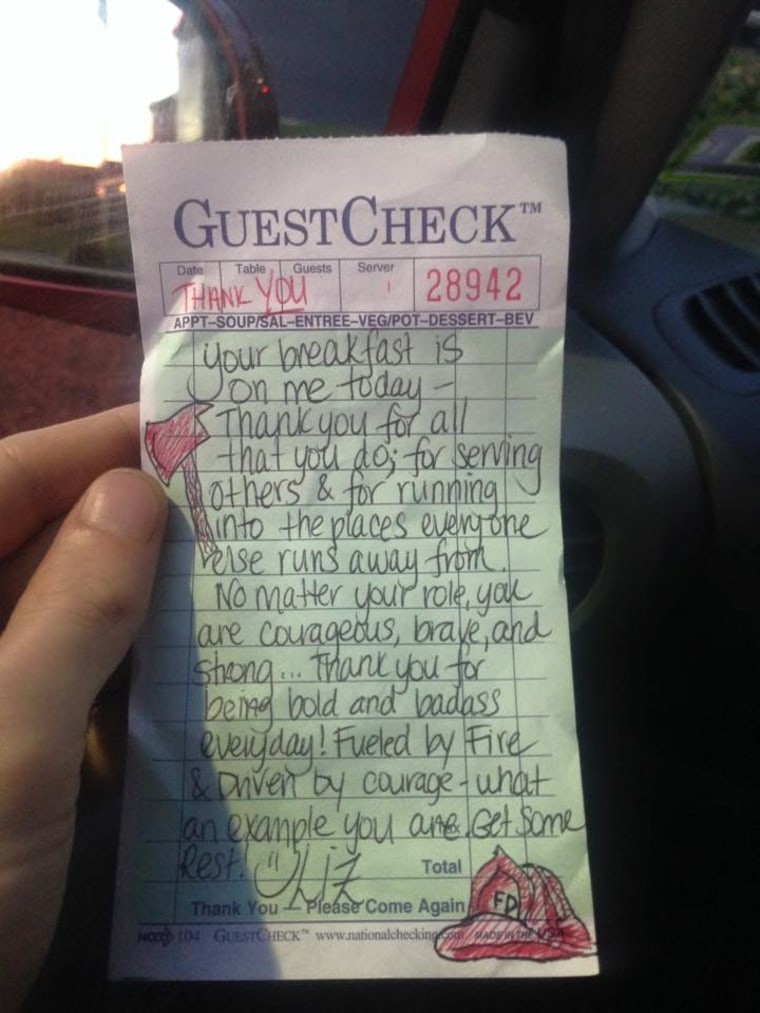 GUESTCHECK™
Date Table Guests Server
THANK YOU 28942
APPT–SOUP/SAL–ENTREE–VEG/POT–DESSERT–BEV
your breakfast is
on me today –
Thank you for all
that you do; for serving
others & for running
into the places everyone
else runs away from.
No matter your role, you
are courageous, brave, and
strong... Thank you for
being bold and badass
everyday! Fueled by Fire
& Driven by courage - what
an example you are. Get Some
Rest! Liz
Total
Thank You – Please Come Again
FD
NCCO 104 GUESTCHECK™ www.nationalchecking.com MADE IN THE USA